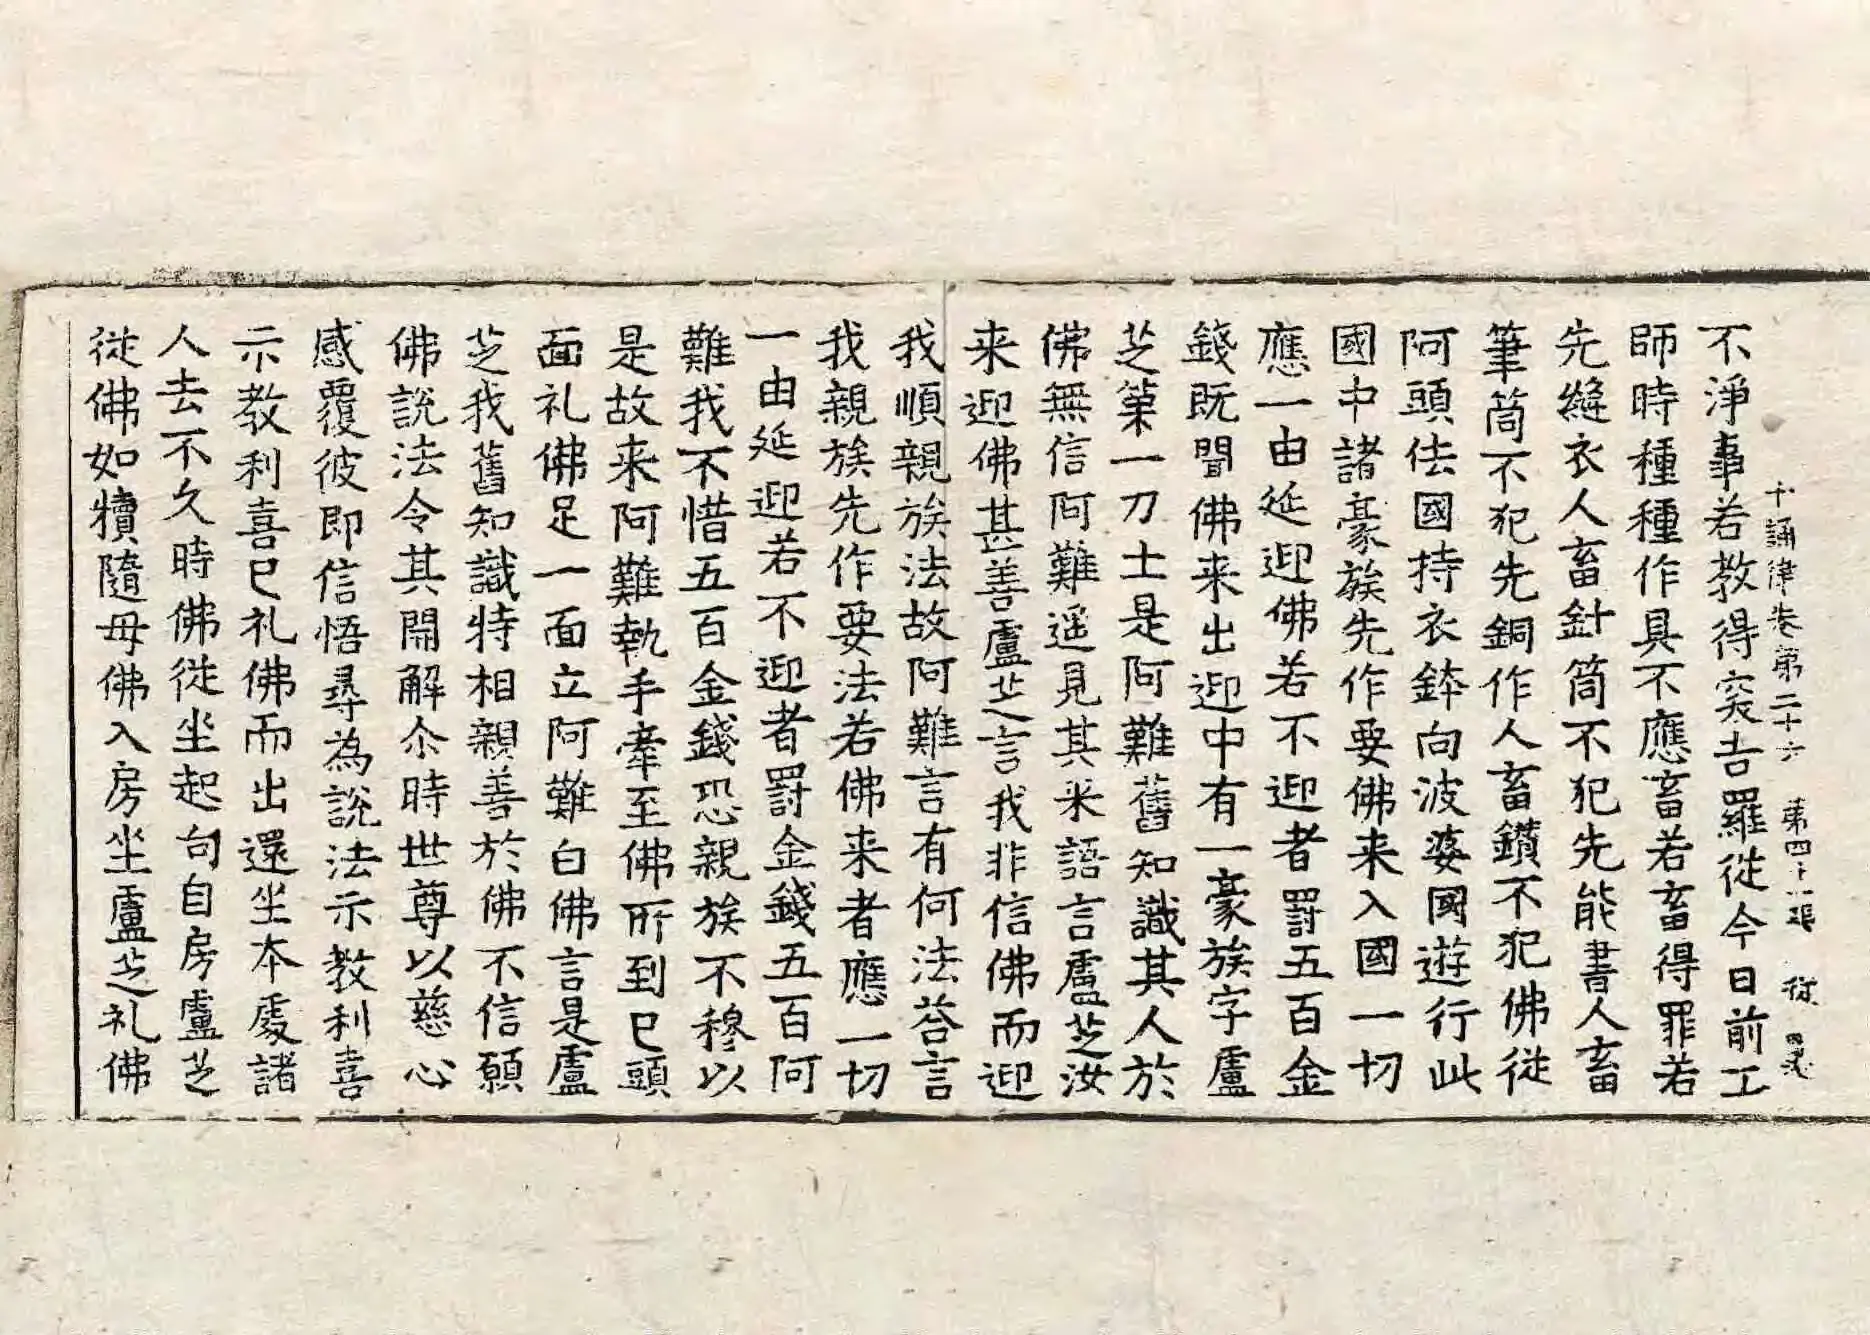 十誦律卷第二十六　第四十　張　從
不淨事若教得突吉羅從今日前工
師時種種作具不應畜若畜得罪若
先縫衣人畜針筒不犯先能書人畜
筆筒不犯先銅作人畜鑽不犯佛從
阿頭佉國持衣鉢向波婆國遊行此
國中諸豪族先作要佛来入國一切
應一由延迎佛若不迎者罰五百金
錢既聞佛来出迎中有一豪族字盧
芝第一刀士是阿難舊知識其人於
佛無信阿難遥見其来語言盧芝汝
来迎佛甚善盧芝言我非信佛而迎
我順親族法故阿難言有何法荅言
我親族先作要法若佛来者應一切
一由延迎若不迎者罰金錢五百阿
難我不惜五百金錢恐親族不穆以
是故来阿難執手牽至佛所到已頭
面礼佛足一面立阿難白佛言是盧
芝我舊知識特相親善於佛不信願
佛説法令其開解尒時世尊以慈心
感覆彼即信悟尋為説法示教利喜
示教利喜已礼佛而出還坐本處諸
人去不久時佛從坐起向自房盧芝
從佛如犢隨母佛入房坐盧芝礼佛